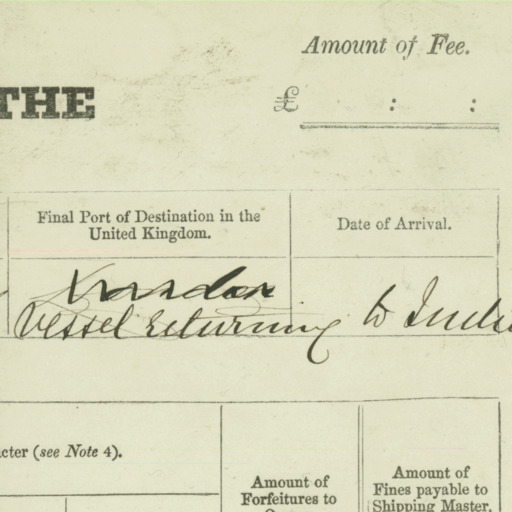 Amount of Fee.
THE
£ : :
Final Port of Destination in the
United Kingdom.
Date of Arrival.
London
Vessel returning to
cter (see Note 4).
Amount of
Forfeitures to
Amount of
Fines payable to
Shipping Master.